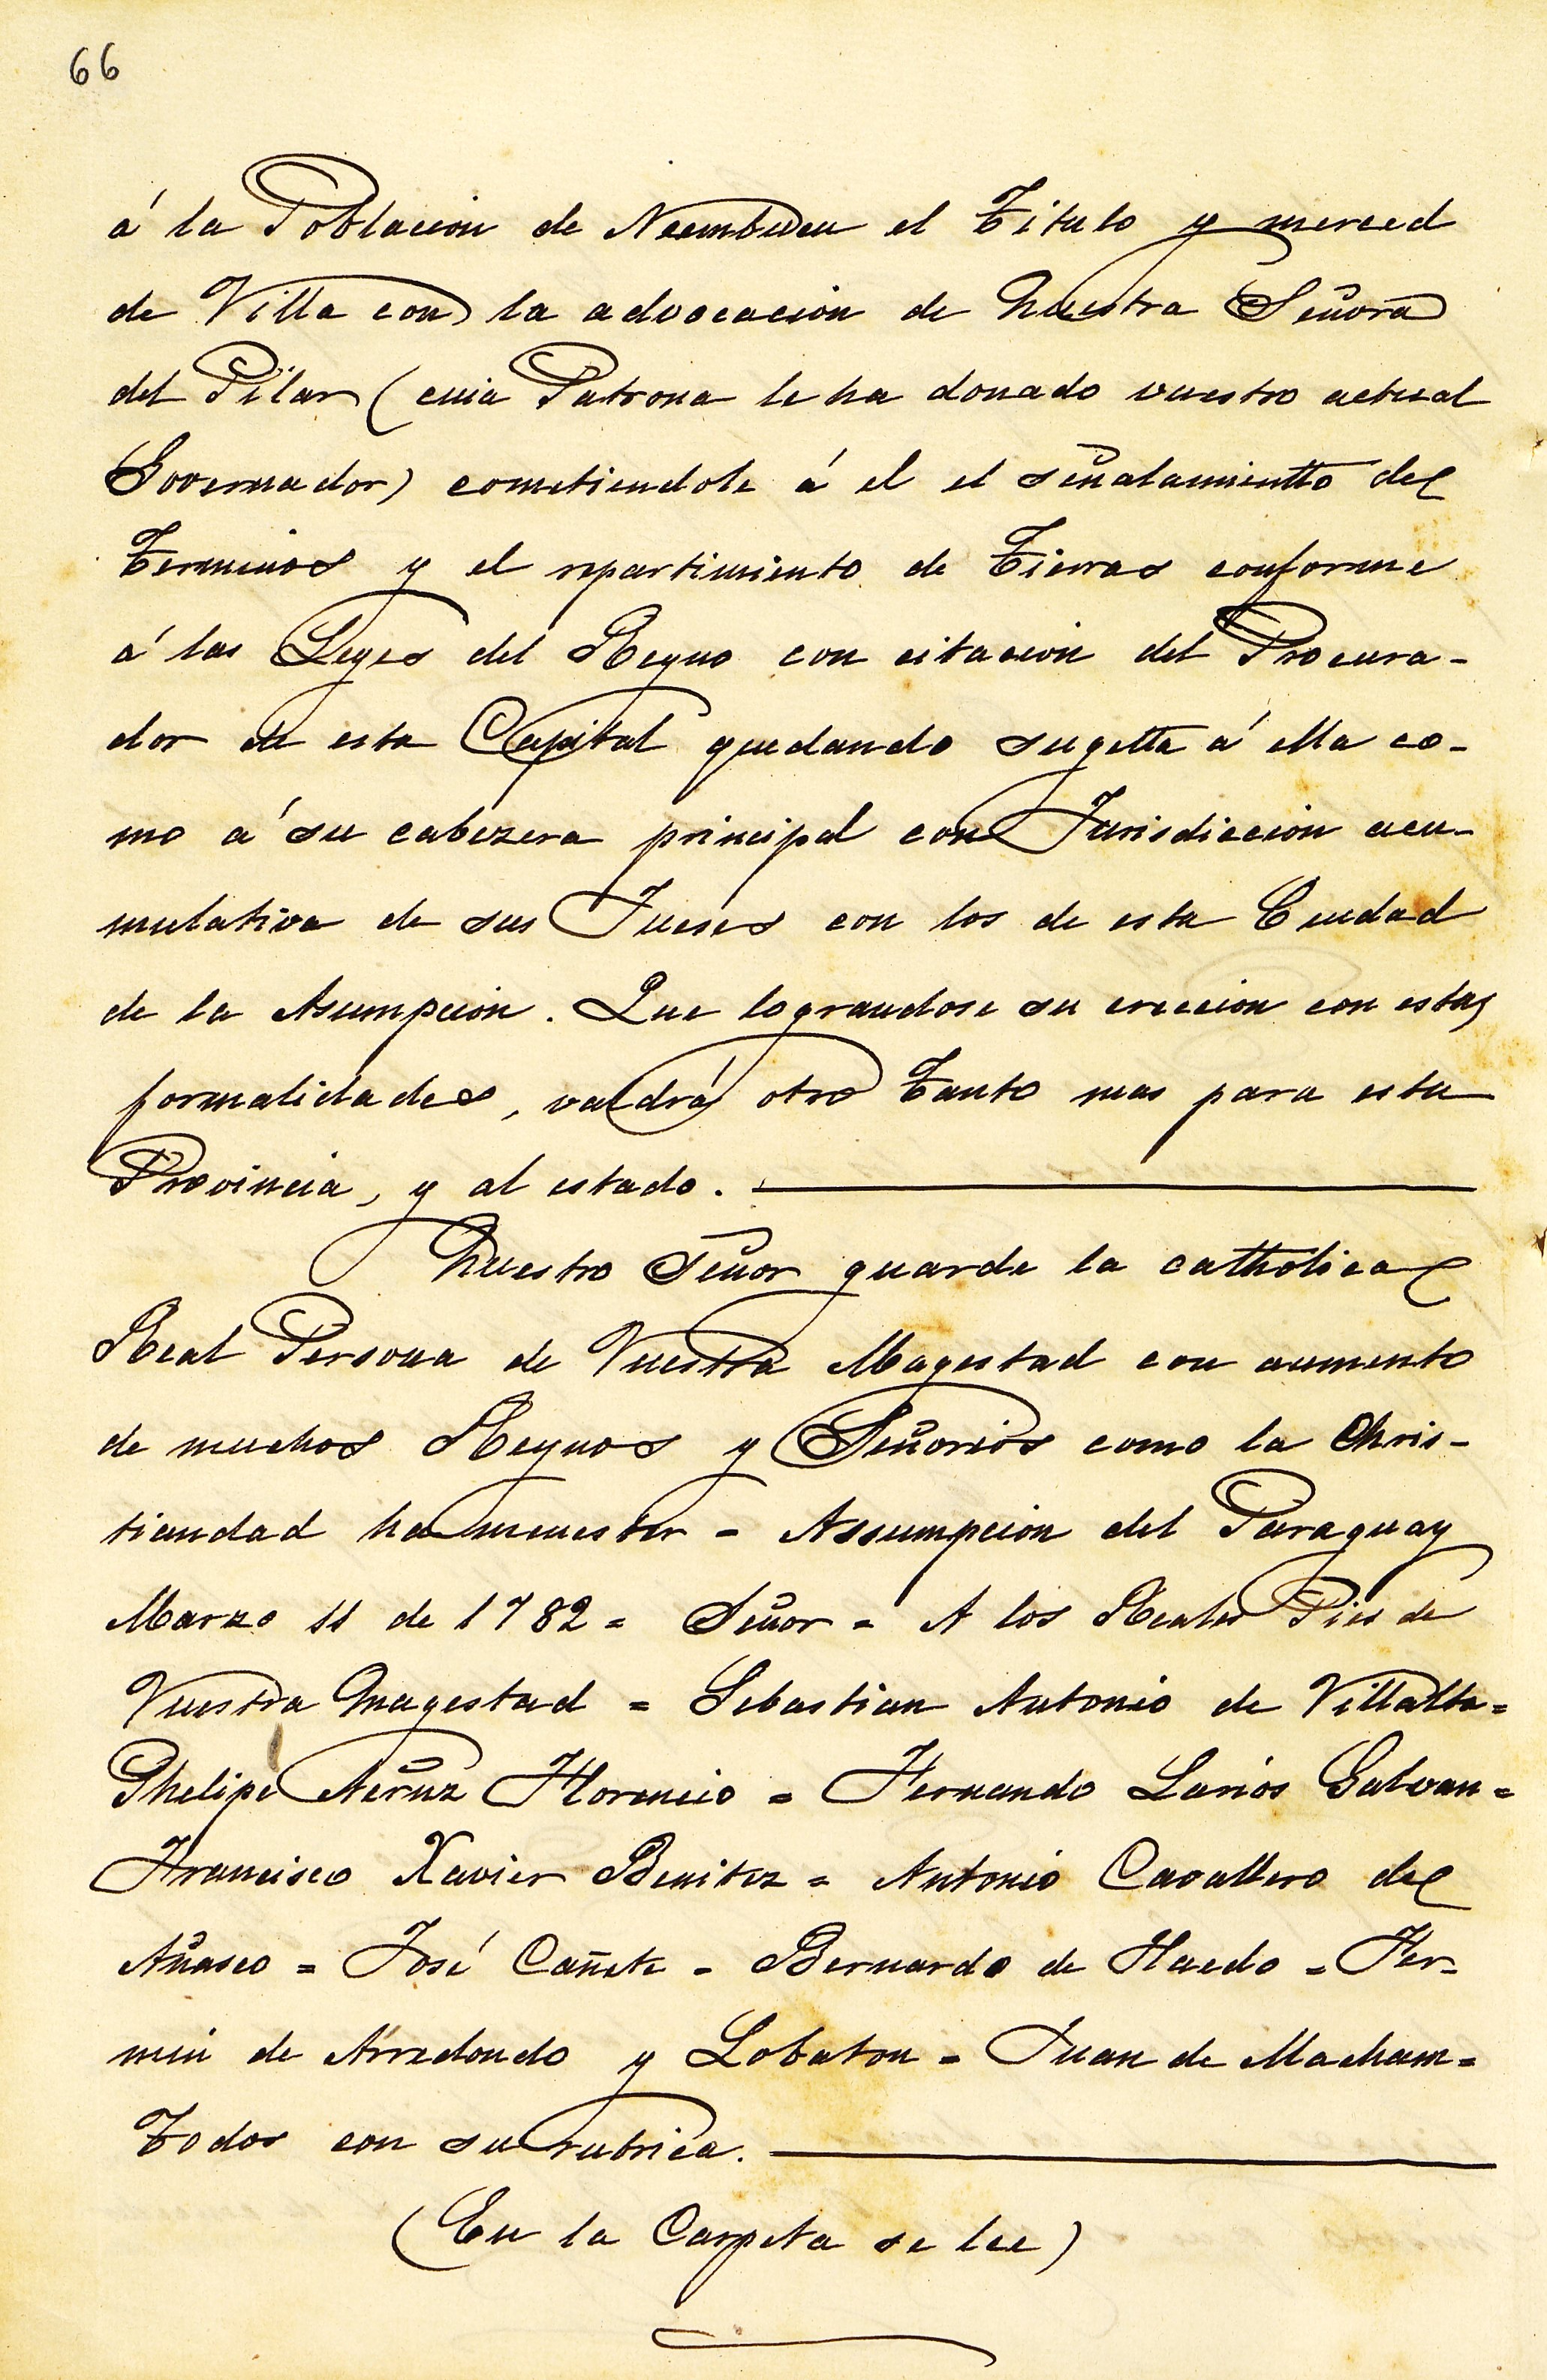 66
á la Poblacion de Neembucu el Titulo y merced
de Villa con la advocacion de Nuestra Señora
del Pilar (cuia Patrona le ha donado vuestro actual
Governador) cometiendole á el el señalamientto de
Terminos y el repartimiento de Tierras conforme
á las Leyes del Reyno con citacion del Procura-
dor de esta Capital quedando sugetta á ella co-
mo á su cabezera principal con Jurisdiccion acu-
mulativa de sus Jueses con los de esta Ciudad
de la Asumpcion. Que lograndose su ereccion con estas
formalidades, valdrá otro tanto mas para esta
Provincia, y al estado.
Nuestro Señor guarde la cattholica
Real Persona de Vuestra Magestad con aumento
de muchos Reynos y Señorios como la Chris-
tiandad ha menester = Assumpcion del Paraguay
Marzo 11 de 1782 = Señor = A los Reales Pies de
Vuestra Magestad = Sebastian Antonio de Villalta =
Phelipe Florencio = Fernando Larios Galvan =
Francisco Xavier Benitez = Antonio Cavallero de
Añasco = José Cañete = Bernardo de Haedo = Fer-
min de Arredondo y Lobaton = Juan de Macham =
Todos con su rubrica.
(En la Carpeta se lee)